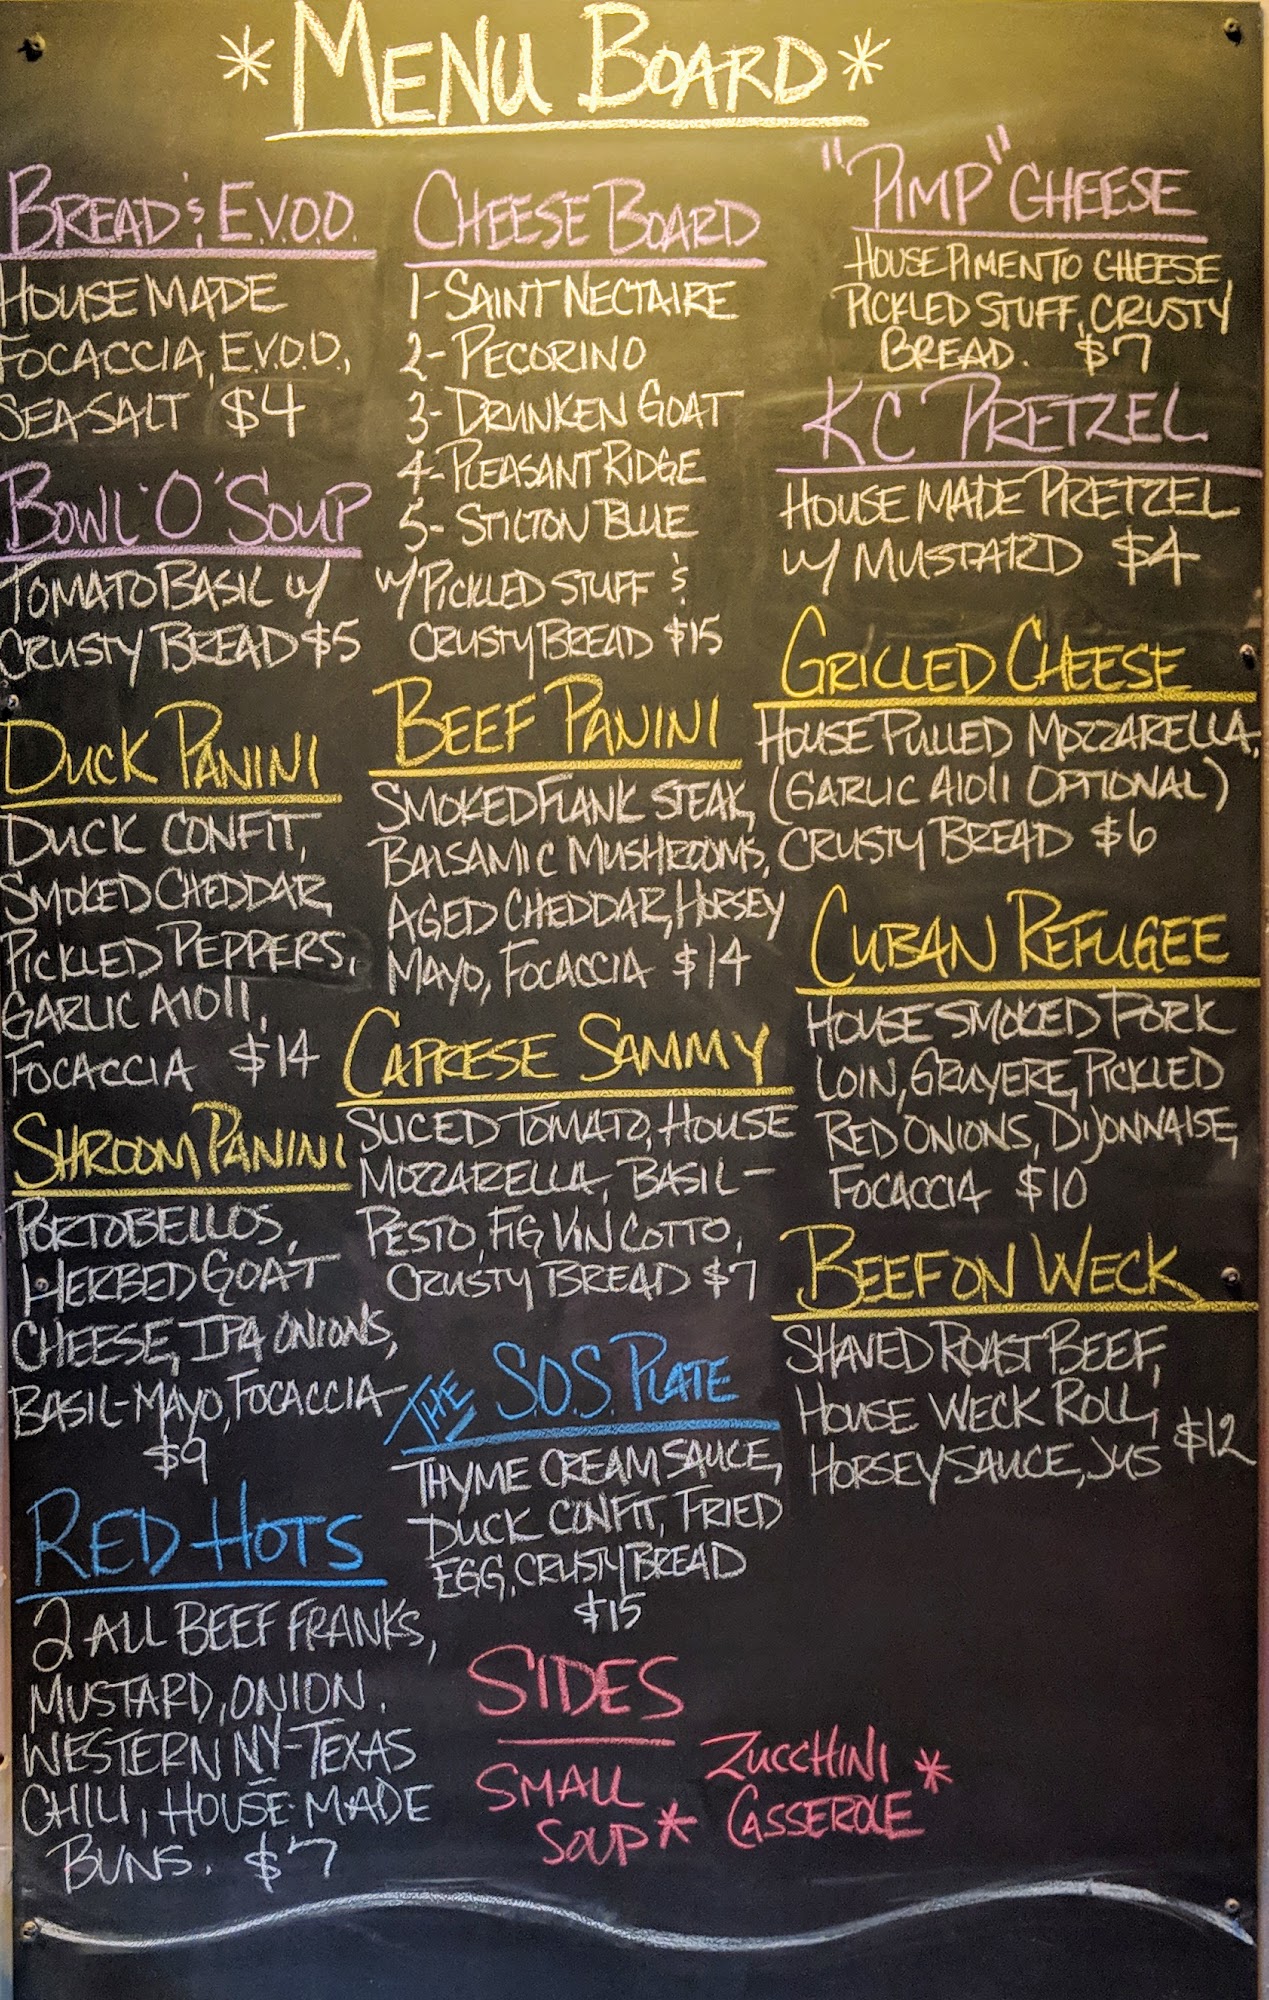 *MENU BOARD*
BREAD & E.V.O.O.
HOUSE MADE
FOCACCIA, E.V.O.O.,
SEA SALT $4
BOWL 'O' SOUP
TOMATO BASIL W/
CRUSTY BREAD $5
DUCK PANINI
DUCK CONFIT,
SMOKED CHEDDAR,
PICKLED PEPPERS,
GARLIC AIOLI,
FOCACCIA $14
SHROOM PANINI
PORTOBELLOS,
HERBED GOAT
CHEESE, IPA ONIONS,
BASIL-MAYO, FOCACCIA
$9
RED HOTS
2 ALL BEEF FRANKS,
MUSTARD, ONION.
WESTERN NY-TEXAS
CHILI, HOUSE-MADE
BUNS. $7
CHEESE BOARD
1-SAINT NECTAIRE
2-PECORINO
3-DRUNKEN GOAT
4-PLEASANT RIDGE
5-STILTON BLUE
W/ PICKLED STUFF &
CRUSTY BREAD $15
BEEF PANINI
SMOKED FLANK STEAK,
BALSAMIC MUSHROOMS,
AGED CHEDDAR, HORSEY
MAYO, FOCACCIA $14
CAPRESE SAMMY
SLICED TOMATO, HOUSE
MOZZARELLA, BASIL-
PESTO, FIG VIN COTTO,
CRUSTY BREAD $7
THE S.O.S. PLATE
THYME CREAM SAUCE,
DUCK CONFIT, FRIED
EGG, CRUSTY BREAD
$15
SIDES
SMALL
SOUP*
ZUCCHINI
CASSEROLE*
"PIMP" CHEESE
HOUSE PIMENTO CHEESE,
PICKLED STUFF, CRUSTY
BREAD. $7
KC PRETZEL
HOUSE MADE PRETZEL
W/ MUSTARD $4
GRILLED CHEESE
HOUSE PULLED MOZZARELLA,
(GARLIC AIOLI OPTIONAL)
CRUSTY BREAD $6
CUBAN REFUGEE
HOUSE SMOKED PORK
LOIN, GRUYERE, PICKLED
RED ONIONS, DIJONNAISE,
FOCACCIA $10
BEEF ON WECK
SHAVED ROAST BEEF,
HOUSE WECK ROLL,
HORSEY SAUCE, JUS $12